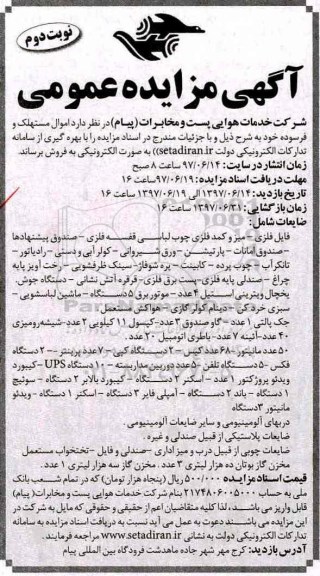 نوبت دوم
آگهی مزایده عمومی
شرکت خدمات هوایی پست و مخابرات (پیام) در نظر دارد اموال مستهلک و
فرسوده خود به شرح ذیل و با جزئیات مندرج در اسناد مزایده را با بهره گیری از سامانه
تدارکات الکترونیکی دولت setadiran.ir)) به صورت الکترونیکی به فروش برساند.
زمان انتشار در سایت: ۹۷/۰۶/۱۴ ساعت ۸ صبح
مهلت دریافت اسناد مزایده: ۹۷/۰۶/۱۹ساعت ۱۶
تاریخ بازدید: ۱۳۹۷/۰۶/۱۴ الی ۱۳۹۷/۰۶/۱۹ ساعت ۱۶
زمان بازگشایی: ۱۳۹۷/۰۶/۳۱ ساعت ۱۶
ضایعات شامل:
فایل فلزی - میز و کمد فلزی چوب لباسی قفسه فلزی - صندوق پیشنهادها
- صندوق امانات - پارتیشن - ورق شیروانی - کولر آبی و دستی - رادیاتور -
تانکر آب - چوب پرده - کابینت - پره شوفاژ- سینک ظرفشویی - رخت آویز پایه
چراغ - صندلی پایه فلزی- پست برق فلزی- قرقره آتش نشانی - دستگاه جوش.
یخچال ویترینی استیل ۴عدد - موتور برق ۵دستگاه - ماشین لباسشویی -
سبزی خردکن - دینام کولر گازی - هواکش مستعمل
جک پالتی ۱ عدد - گاوصندوق ۳عدد-کپسول ۱۱ کیلویی ۲عدد-شیشه رومیزی
۴۰ عدد-آئینه ۷ عدد- باطری اتومبیل ۲۰ عدد .
۵۰ عدد مانیتور -۶۸عدد کیس - ۲دستگاه کپی - ۷عدد پرینتر -- ۲ دستگاه
فکس - ۵دستگاه تلفن -۵۰عدد دوربین مداربسته - ۱۰دستگاه UPS -کیبورد
ویدئو پروژکتور ۱عدد - اسکنر ۲دستگاه - کیبورد بالابر ۲ دستگاه - سوئیچ
۱ دستگاه - باند ۲ دستگاه - آمپلی فایر ۳ دستگاه - اسکنر ۱ دستگاه - ویدئو
مانیتور ۳دستگاه
دربهای آلومینیومی و سایر ضایعات آلومینیومی .
ضایعات پلاستیکی از قبیل صندلی و غیره .
ضایعات چوبی از قبیل درب و میز اداری -صندلی و فایل -تختخواب مستعمل
مخزن گاز بوتان ده هزار لیتری ۳ عدد . مخزن گاز سه هزار لیتری ۱ عدد .
قیمت اسناد مزایده ۵۰۰/۰۰۰ ریال (پنجاه هزار تومان) که در تمام شعب بانک
ملی به حساب ۲۱۷۴۸۰۶۰۰۵۰۰۰ بنام شرکت خدمات هوایی پست و مخابرات( پیام)
قابل واریز می باشد.، لذا کلیه متقاضیان اعم از حقیقی و حقوقی که مایل به شرکت در
این مزایده می باشند دعوت به عمل می آید نسبت به دریافت اسناد مزایده به سامانه
تدارکات الکترونیکی دولت به نشانی www.setadiran.ir مراجعه فرمایند.
آدرس بازدید: کرج مهر شهر جاده ماهدشت فرودگاه بین المللی پیام